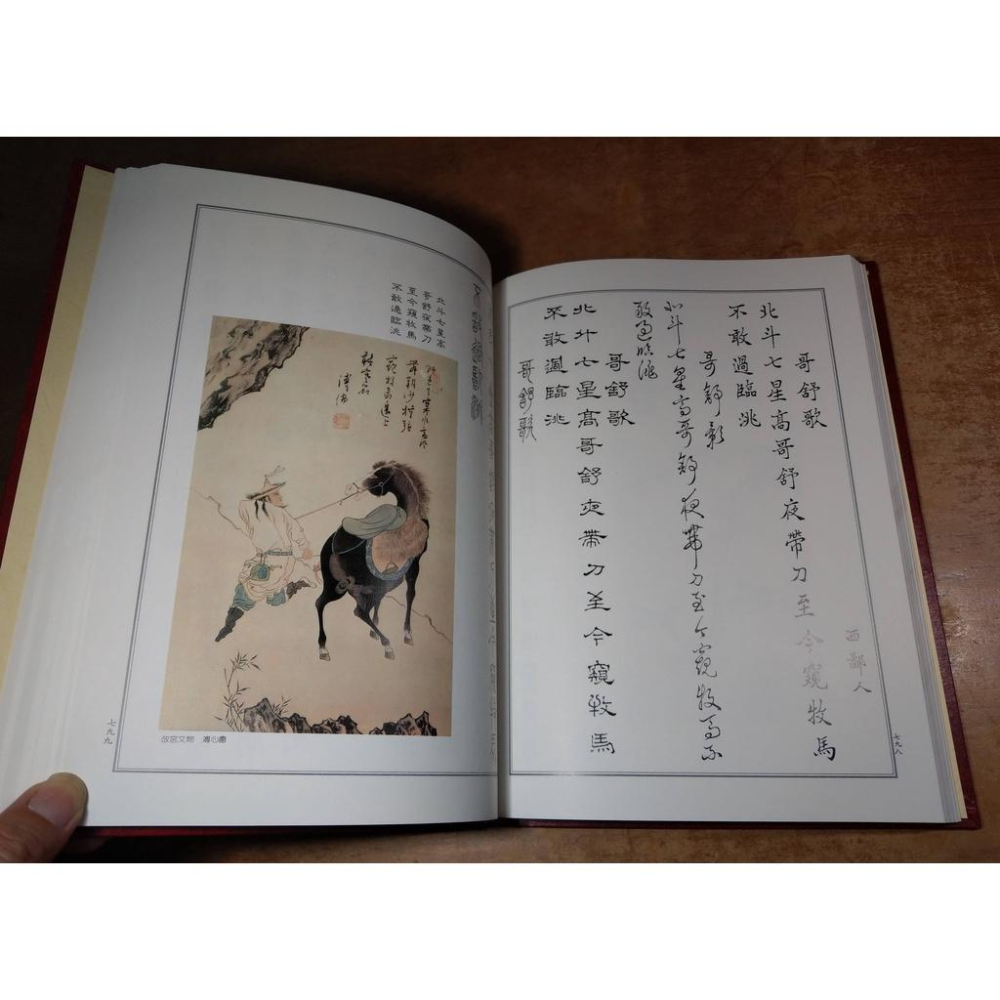 哥舒歌
西鄙人
北斗七星高哥舒夜帶刀至今窺牧馬
不敢過臨洮
哥舒歌
北斗七星高哥舒夜帶刀至今窺牧馬不
敢過臨洮
哥舒歌
北斗七星高哥舒夜帶刀至今窺牧馬
不敢過臨洮
哥舒歌
七九八
北斗七星高
哥舒夜帶刀
至今窺牧馬
不敢過臨洮
溥儒
故宮文物 溥心畬
七九九